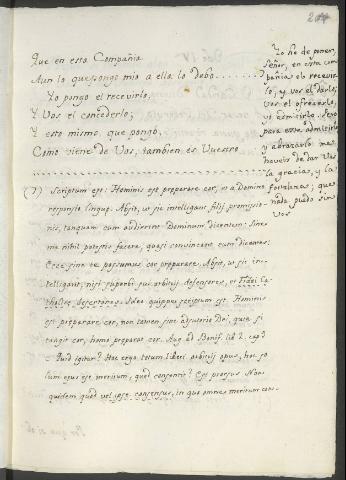 Que en esta Compañia
Aun lo que pongo mio a ella lo debo.
Yo pongo el recevirlo,
Y Vos el concederlo;
Y esto mismo, que pongo,
Como viene de Vos, tambien es Vuestro
Yo he de poner,
Señor, en esta com-
pañia el recevir-
lo; y Vos el darlo;
Vos el ofrecerlo,
yo admitirlo. Pero
para este admitirlo
y abrazarlo me
haveis de dar Vos
la gracia, y la
fortaleza; que
nada puedo sin
Vos
(7) Scriptum est: Hominis est preparare cor, et a Domino
responsio linguę. Absit, ut sic intelligant filij promissio-
nis, tanquam cum audierint Dominum dicentem: Sine
me nihil potestis facere, quasi convincant eum dicentes:
Ecce sine te possumus cor preparare. Absit, ut sic in-
telligant, nisi superbi sui arbitrij defensores, et fidei Ca-
tholicę desertores. Ideo quippe scriptum est Hominis
est preparare cor, non tamen sine adjutorio Dei, qui si
tangit cor, homo preparat cor. Aug ad Bonif. lib 2. cap 9
Quid igitur? Hoc ergo totum liberi arbitrij opus, hoc so-
lum ejus est meritum, quod consentit? Est prorsus. Non
quidem quod vel ipse consensus, in quo omne meritum con-